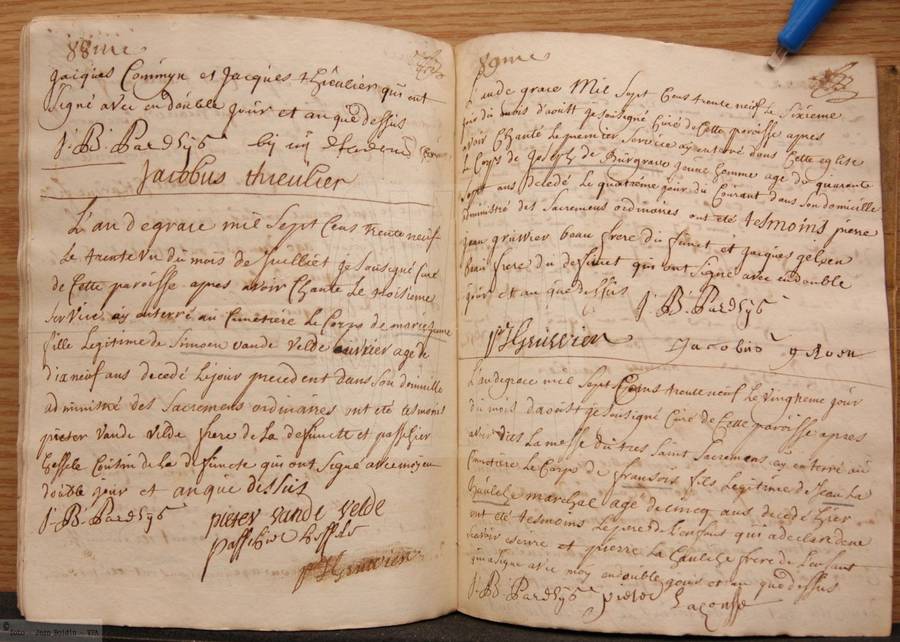 88me
jacques Commyn et jacques thieulier qui ont
signé avec en double jour et an que dessus
J: B: Pardÿs
Jacobus thieulier
L'an de grace mil sept cens trente neuf
Le trente un du mois de juilliet je sousigné curé
de Cette paroisse apres avoir chanté Le troisieme
service aÿ enterré au Cimetiére Le Corps de marie jeune
fille Legitime de Simoen vande velde ouvrier agé de
dix neuf ans decedé le jour precedent dans son domicille
administré des sacremens ordinaires ont été tesmoins
pieter vande velde frere de La defuncte et passchier
hessele Cousin de La defuncte qui ont signé avec moÿ en
double jour et an que dessus
J: B: Pardÿs pieter vande velde
passchier hessele
89me
L'an de grace Mil sept Cens trente neuf Le sixieme
jour du mois d'aoûtt je sousigné Curé de Cette paroisse apres
avoir Chanté Le premier service aÿ enterré dans Cette eglise
Le Corps de Joseph de Burgrave jeune homme agé de quarante
sept ans decedé Le quatriéme jour du Courant dans son domicille
administré des sacremens ordinaires ont été tesmoins pierre
jean gruwier beau frere du funct et jacques
beau frere du defunct qui ont signé avec en double
jour et an que dessus
J: B: Pardÿs
Jacobus
L'an de grace mil sept Cens trente neuf Le vingtieme jour
du mois d'aoûst je sousigné Curé de Cette paroisse apres
avoir dies La messe du tres saint sacremens aÿ enterré au
Cimetiére Le Corps de fransois fils Legitime de Jean La
marchal agé de cincq ans decedé hier
ont été tesmoins Le pere de L'enfans qui a declaré de ne
scavoir escrire et pierre La frere de L'enfant
qui a signé avec moÿ en double jour et an que dessus
J: B: Pardÿs pieter
© foto : Joan Boidin - VVA